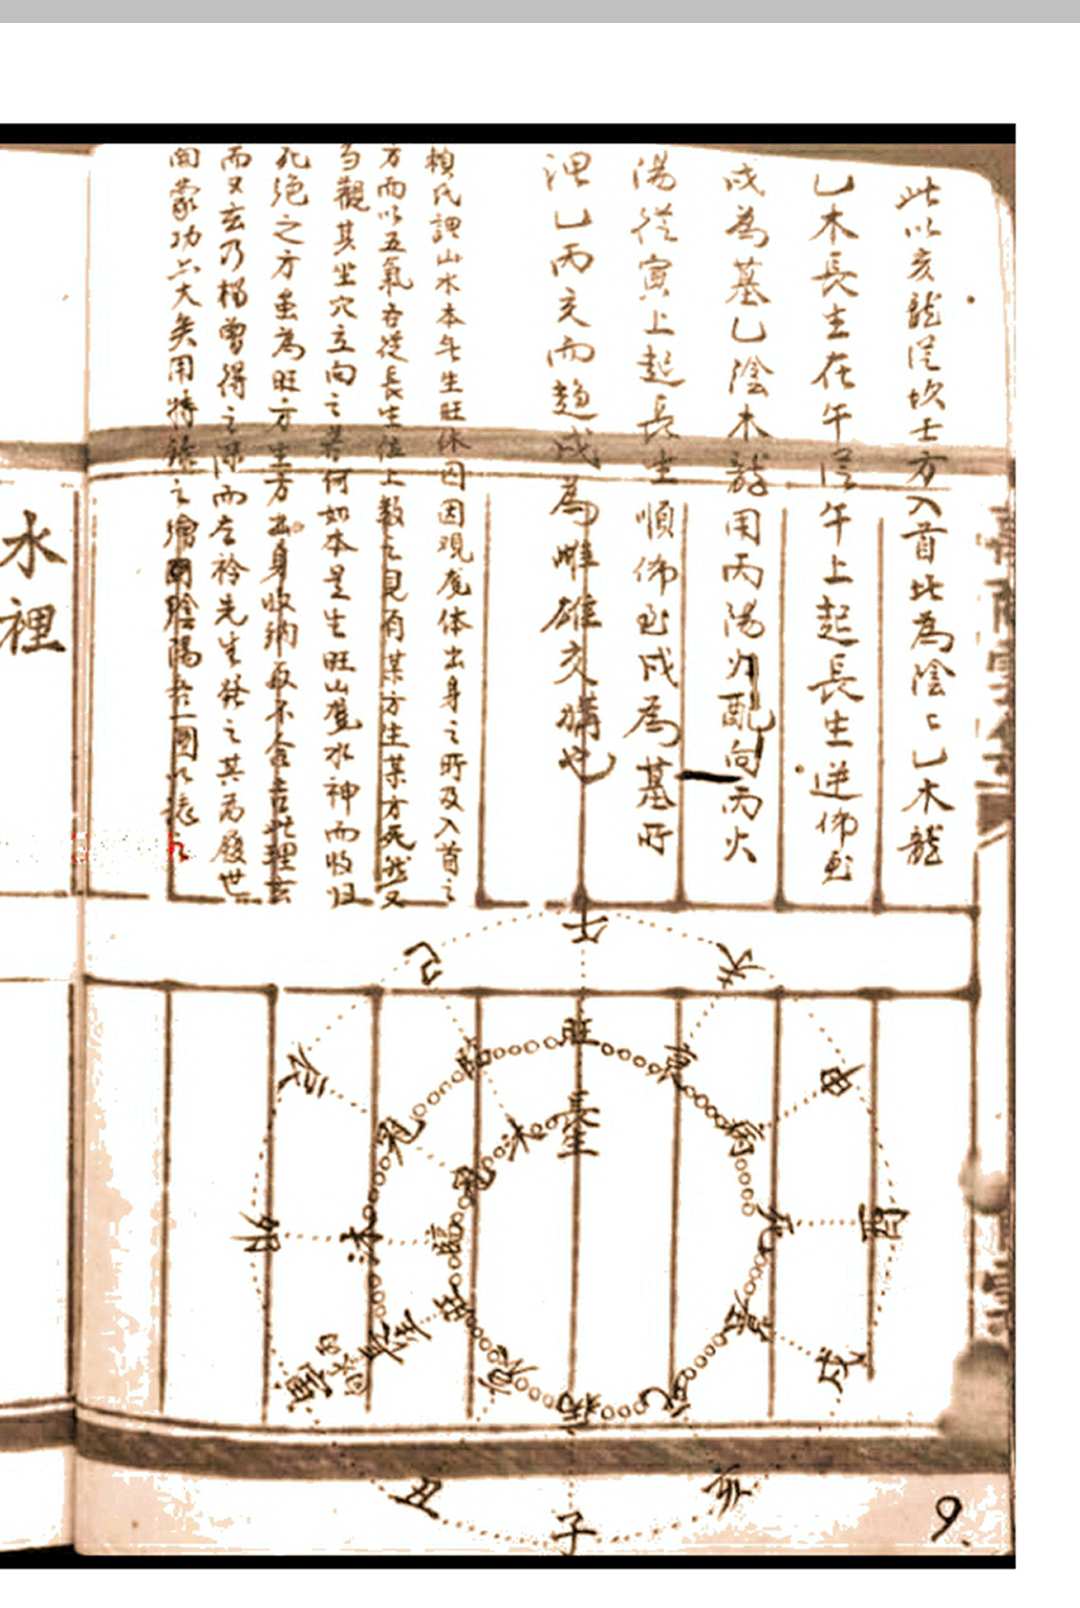 此以亥龍從坎壬方入首此為陰乙乙木龍
乙木長生在午從午上起長生逆佈到
戌為墓乙陰木龍用丙陽火配向丙火
陽從寅上起長生順佈到戌為墓所
謂乙丙交而趨戌為雌雄交媾也
賴氏謂山水本無生旺休囚因觀龍体出身之所及入首之
方而以五氣各從長生位上數之見有某方生某方死然又
當觀其坐穴立向之若何如本是生旺山龍水神而收归
死絕之方虽為旺方生方出身收納反不合吉此理玄
而又玄乃楊曾得之深而左衿先生發之其為後世
開蒙功亦大矣用特錄之繪圖陰陽各一圖以誌
水裡
午
未
申
酉
戌
亥
子
丑
寅
卯
辰
巳
旺
衰
病
死
墓
絕
長生
沐
冠
臨
長生
沐
冠
臨
旺
衰
病
丙火局
9